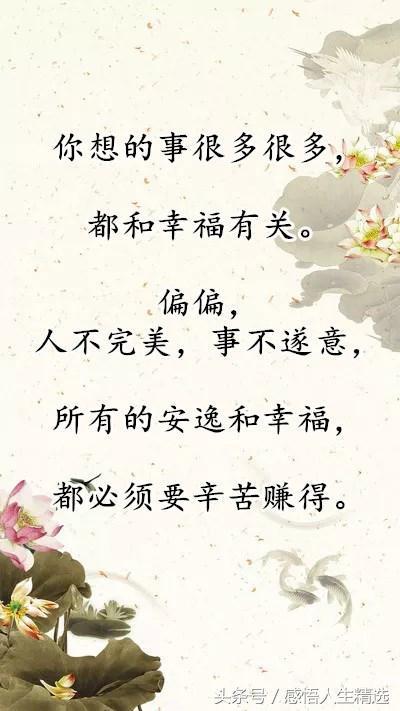 你想的事很多很多，
都和幸福有关。
偏偏，
人不完美，事不遂意，
所有的安逸和幸福，
都必须要辛苦赚得。
头条号/感悟人生精选